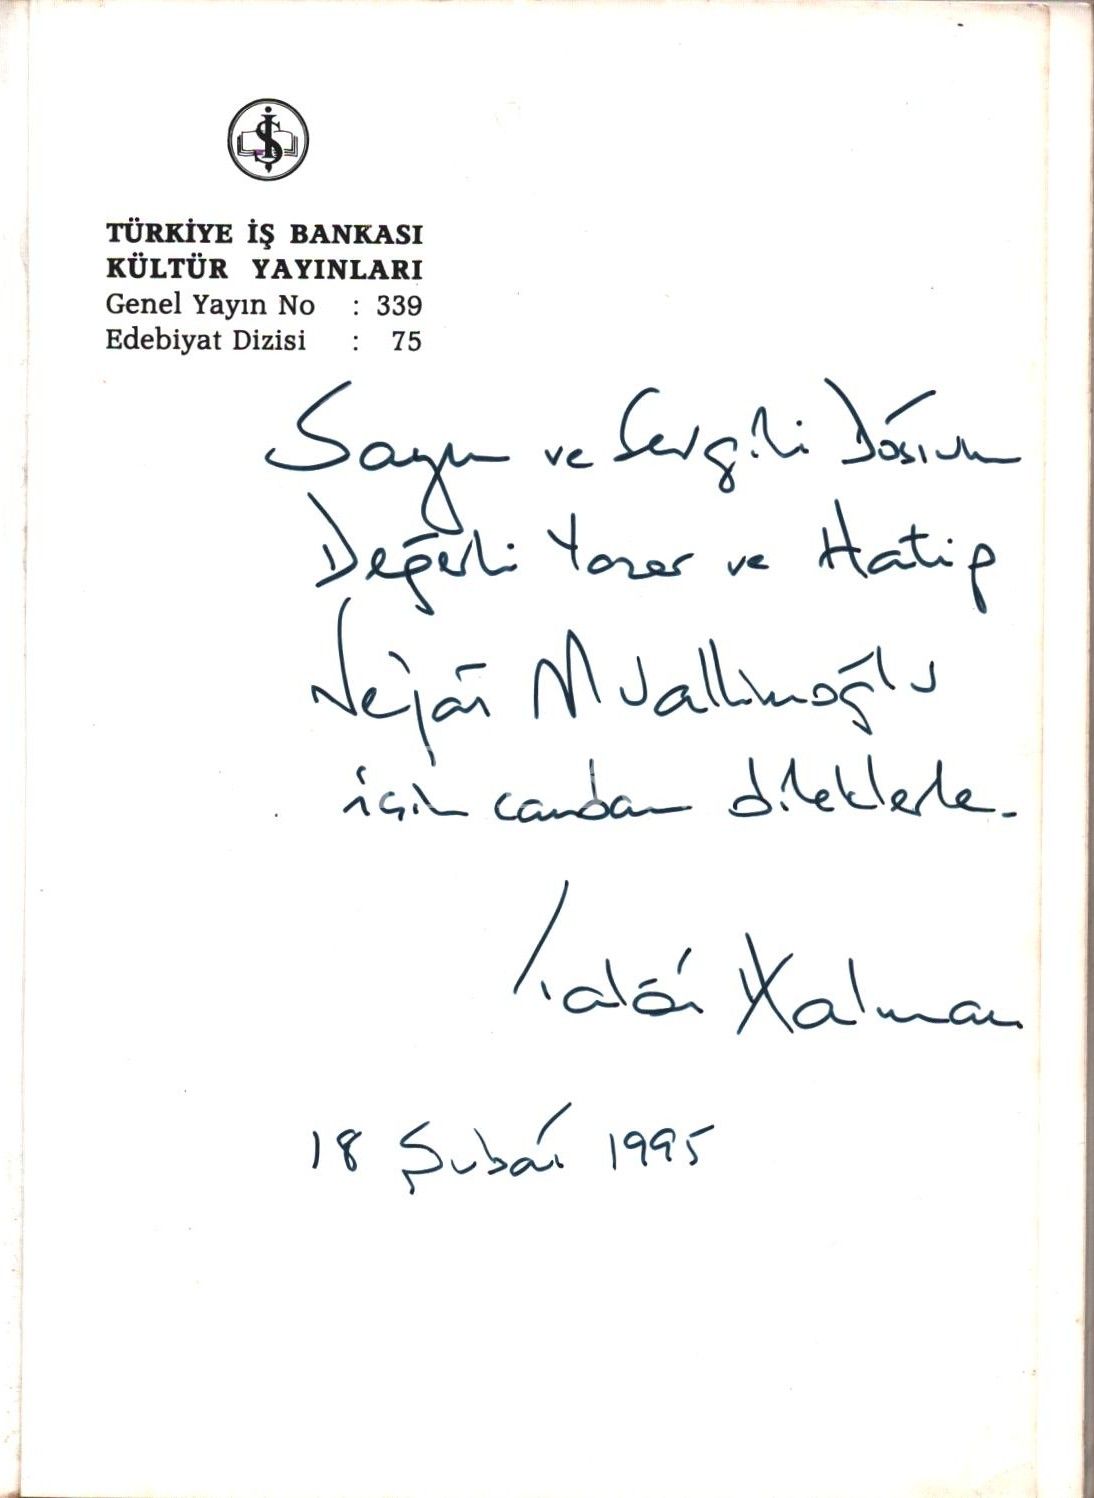 İŞ
TÜRKİYE İŞ BANKASI
KÜLTÜR YAYINLARI
Genel Yayın No : 339
Edebiyat Dizisi : 75
Sayın ve Sevgili Dostum
Değerli Yazar ve Hatip
Nejat Muallimoğlu
için candan dileklerle.
Talât Halman
18 Şubat 1995